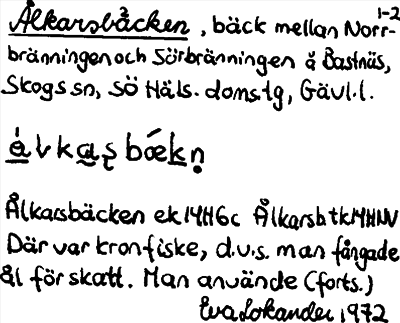 1-2
Ålkarsbäcken, bäck mellan Norr-
bränningen och Sörbränningen å Bastnäs,
Skogs sn, SÖ Häls. doms.tg, Gävl.l.
Ålkarsbäcken ek 14H6c Ålkarsb tk
Där var kronfiske, d.v.s. man fångade
ål för skatt. Man använde (forts.)
Eva Lokander 1972